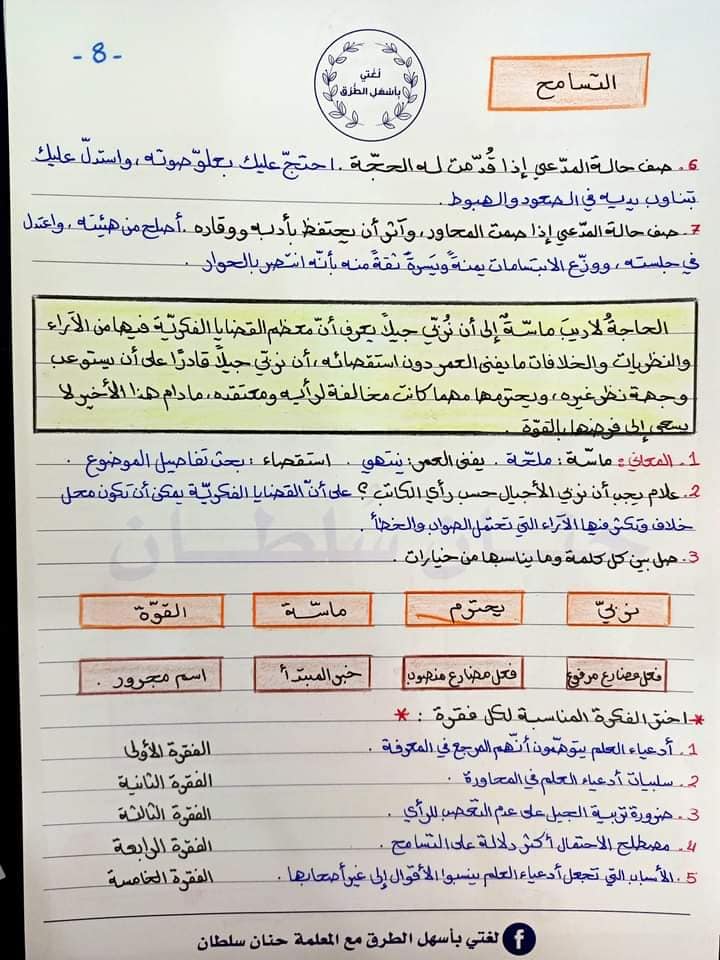 - 8 -
لغتي
بأسهل الطرق
التسامح
6. صف حالة المدّعي إذا قُدّمت له الحجّة . احتجّ عليك بعلوّ صوته ، واستدلّ عليك
بتناوب يديه في الصعود والهبوط .
7. صف حالة المدّعي إذا صمت المحاور ، وآثر أن يحتفظ بأدبه ووقاره . أصلح من هيئته ، واعتدل
في جلسته ، ووزّع الابتسامات يمنةً ويسرةً ثقةً منه بأنّه انتصر بالحوار .
الحاجةُ لا ريبَ ماسّةٌ إلى أن نُربّي جيلاً يعرف أنّ معظم القضايا الفكريّة فيها من الآراء
والنظريات والخلافات ما يفنى العمر دون استقصائه ، أن نربّي جيلاً قادرًا على أن يستوعب
وجهة نظر غيره ، ويحترمها مهما كانت مخالفة لرأيه ومعتقده ، مادام هذا الأخير لا
يسعى إلى فرضها بالقوّة .
1. المعاني : ماسّة : ملحّة . يفنى العمر : ينتهي . استقصاء : بحث تفاصيل الموضوع .
2. علام يجب أن نربي الأجيال حسب رأي الكاتب ؟ على أنّ القضايا الفكريّة يمكن أن تكون محل
خلاف وتكثر فيها الآراء التي تحتمل الصواب والخطأ .
حنان سلطان
3. صل بين كل كلمة وما يناسبها من خيارات .
نربّي
يحترم
ماسّة
القوّة
فعل مضارع مرفوع
فعل مضارع منصوب
خبر المبتدأ
اسم مجرور .
* اختر الفكرة المناسبة لكل فقرة : *
1. أدعياء العلم يتوهّمون أنّهم المرجع في المعرفة . الفقرة الأولى
2. سلبيات أدعياء العلم في المحاورة . الفقرة الثانية
3. ضرورة تربية الجيل على عدم التعصب للرأي . الفقرة الثالثة
4. مصطلح الاحتمال أكثر دلالة على التسامح . الفقرة الرابعة
5. الأسباب التي تجعل أدعياء العلم ينسبوا الأقوال إلى غير أصحابها . الفقرة الخامسة
لغتي بأسهل الطرق مع المعلمة حنان سلطان